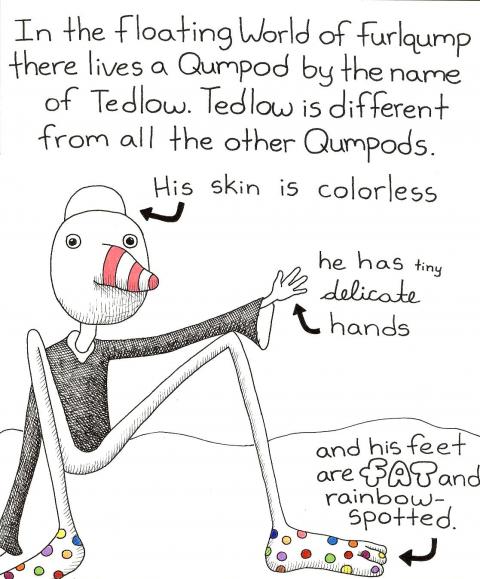 In the Floating World of Furlqump
there lives a Qumpod by the name
of Tedlow. Tedlow is different
from all the other Qumpods.
His skin is colorless
he has tiny
delicate
hands
and his feet
are FAT and
rainbow-
spotted.